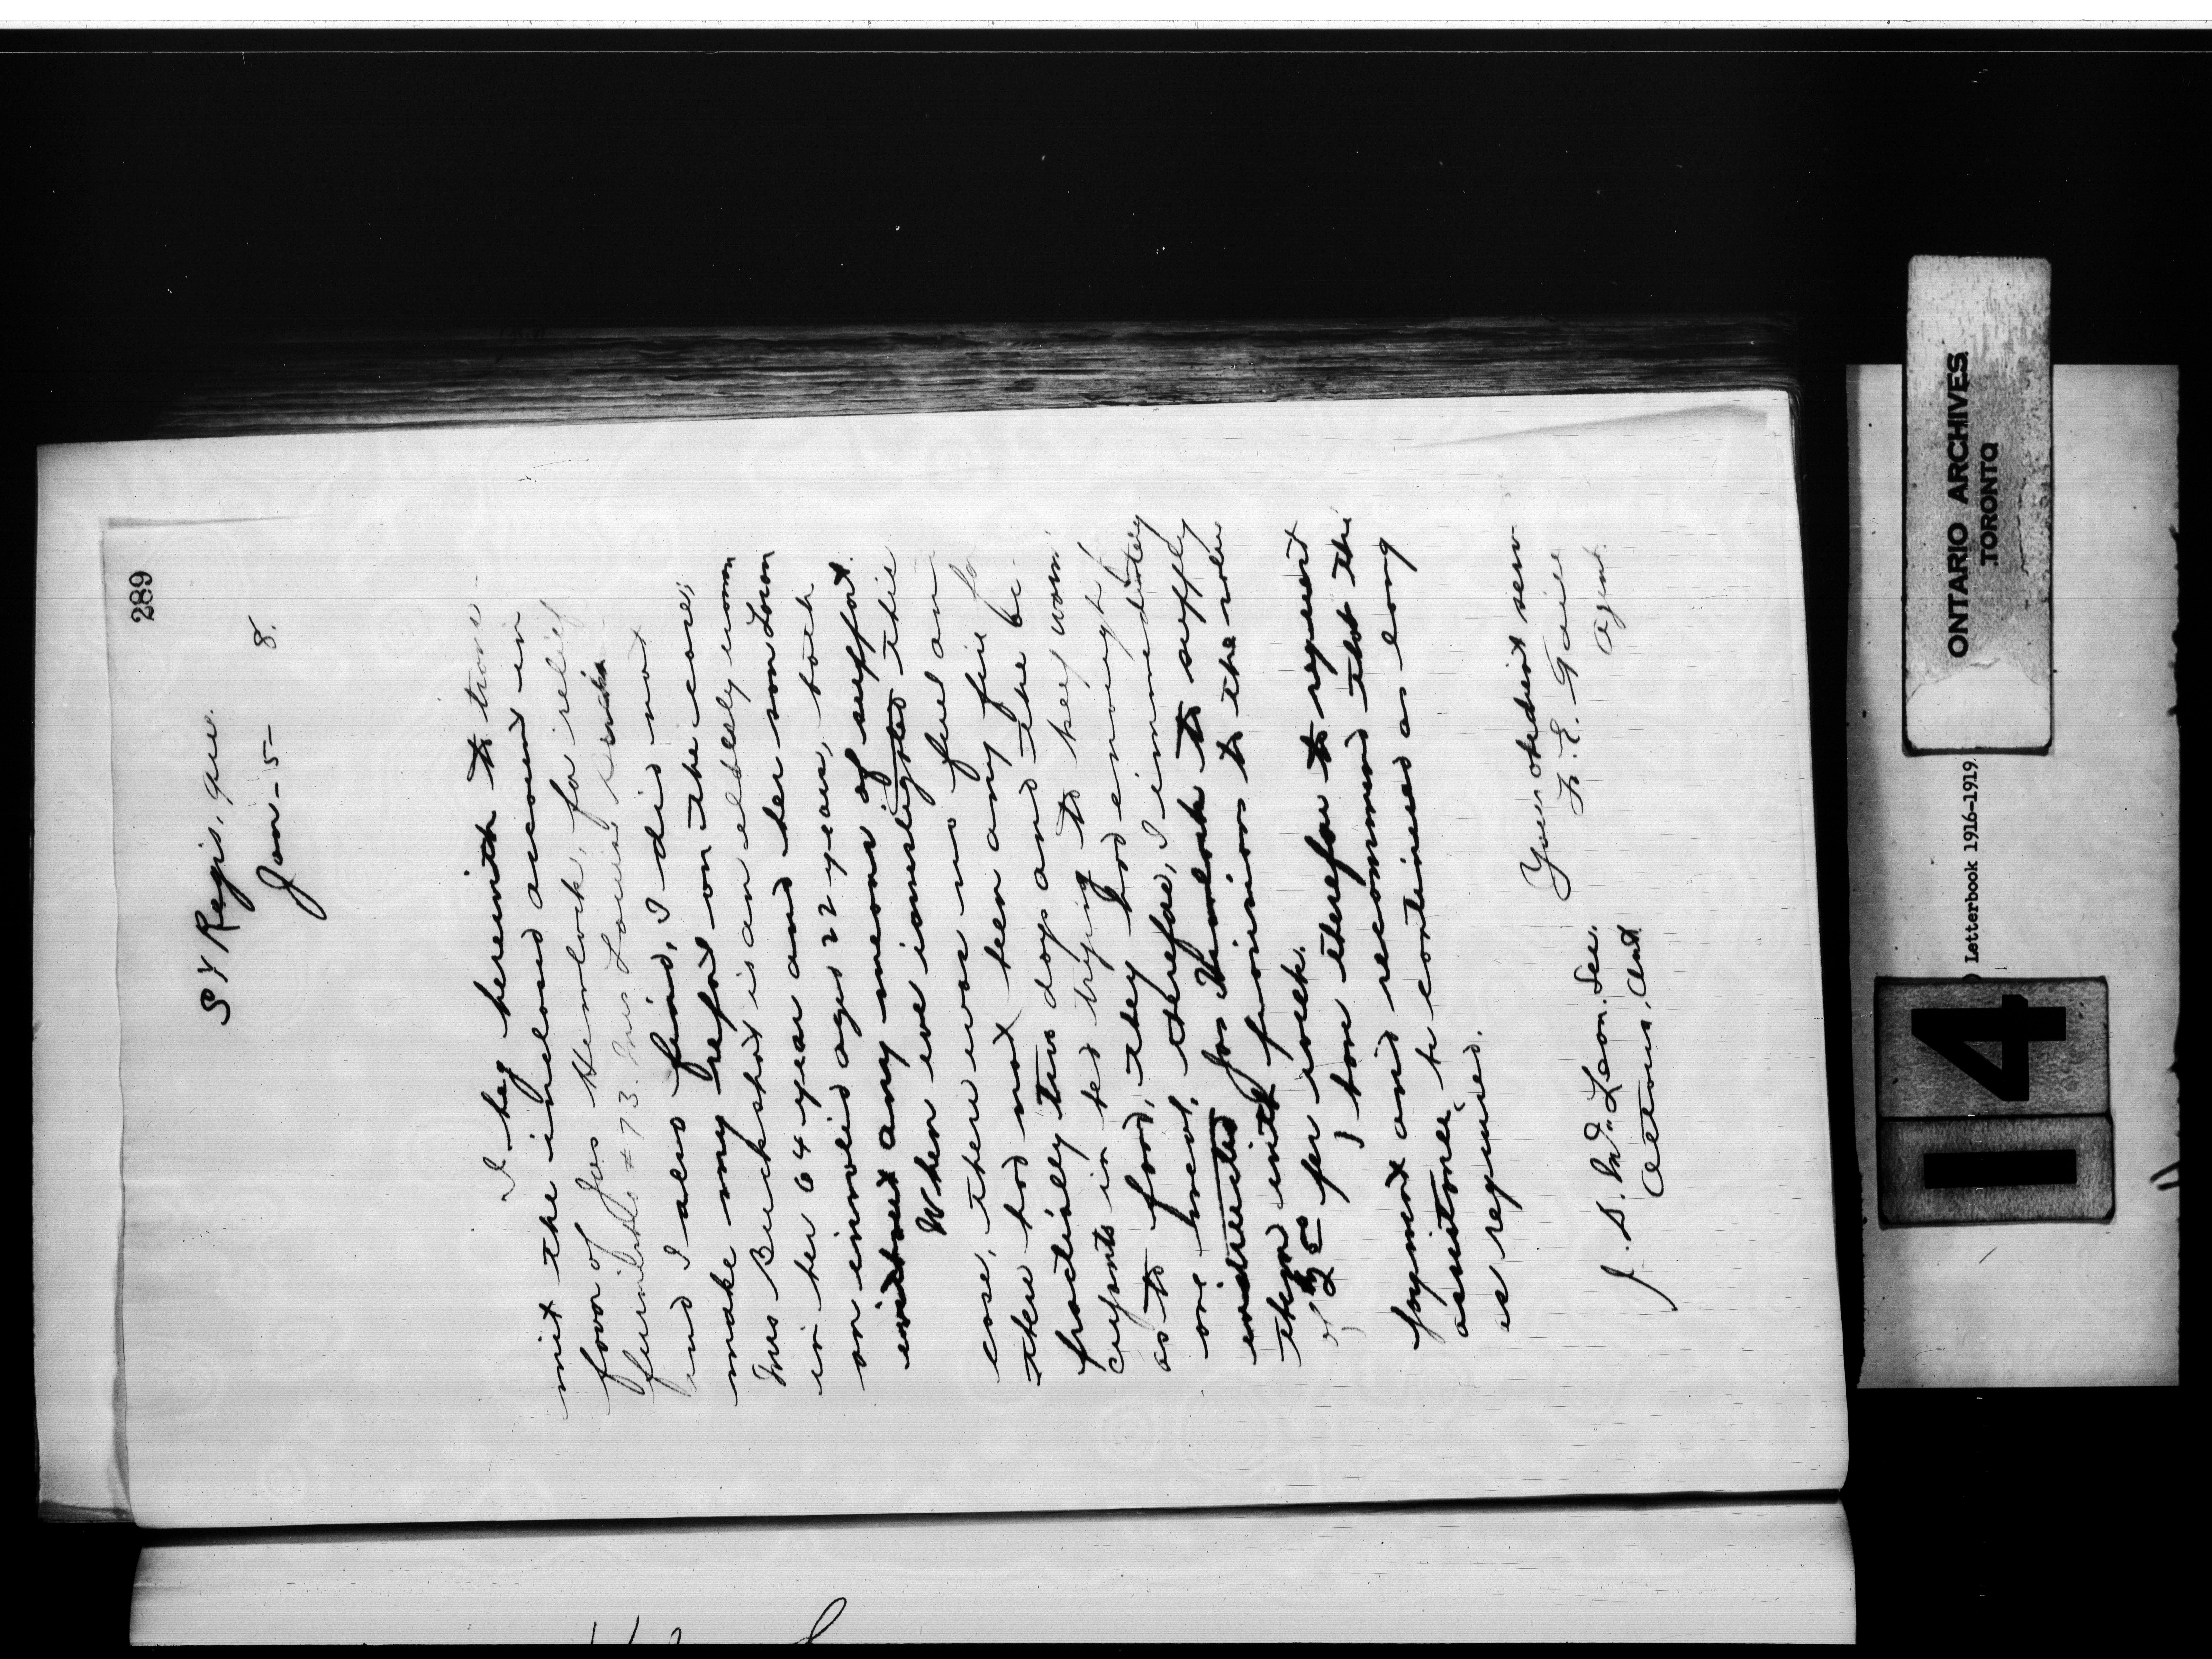 289
St Regis, Que.
Jan - 5 - 8.
I beg herewith to trans
mit the inclosed account in
favor of Jos Hemlock, for relief
furnished # 73. Mrs Louisa
and I also find, I did not
make my report on the case,
Mrs Buckshot is an elderly woman
in her 64 year and her son Louis
an invalid aged 22 years, both
without any means of support.
When we investigated this
case, there was no fuel an
there had not been any fire fo
practically two days and the oc-
cupants in bed trying to keep warm
as to food, they had enough f
one meal, therefore, I immediately
instructed Jos Hemlock to supply
them with provisions to the value
of per week.
I have therefore to request
payment and recommend that the
assistance be continued as long
as required.
Your obedient serv
F. E. Taillo
Agent.
J. D. McLean. Sec.
Ottawa, Ont
ONTARIO ARCHIVES
TORONTO
Letterbook 1916-1919.
14